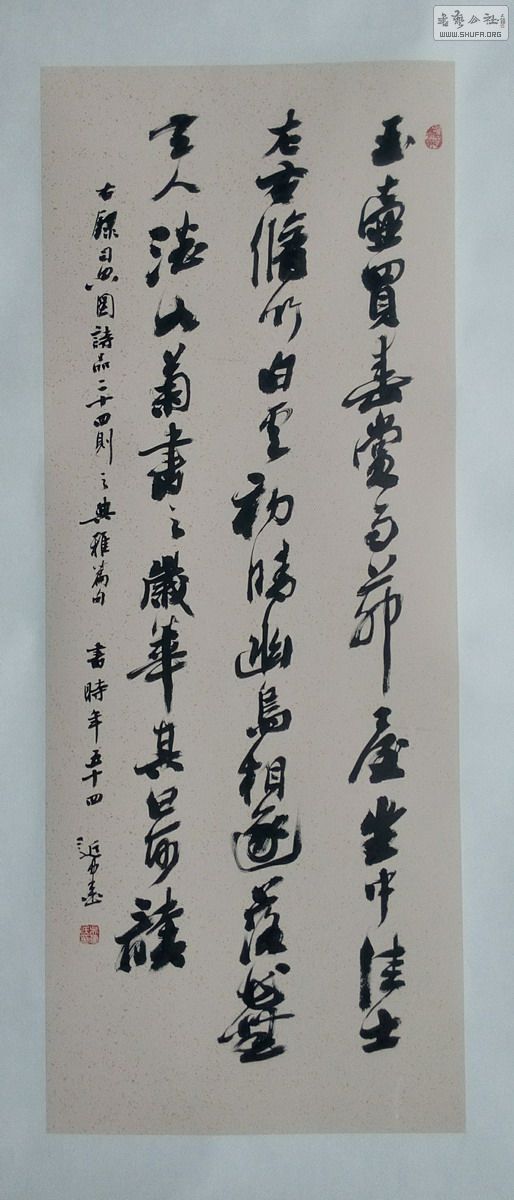 書藝公社
WWW.SHUFA.ORG
玉壺買春賞雨茆屋坐中佳士
左右脩竹白雲初晴幽鳥相逐落花無
言人淡如菊書之歲華其曰可讀
右錄司空圖詩品二十四則之典雅篇句 書時年五十四